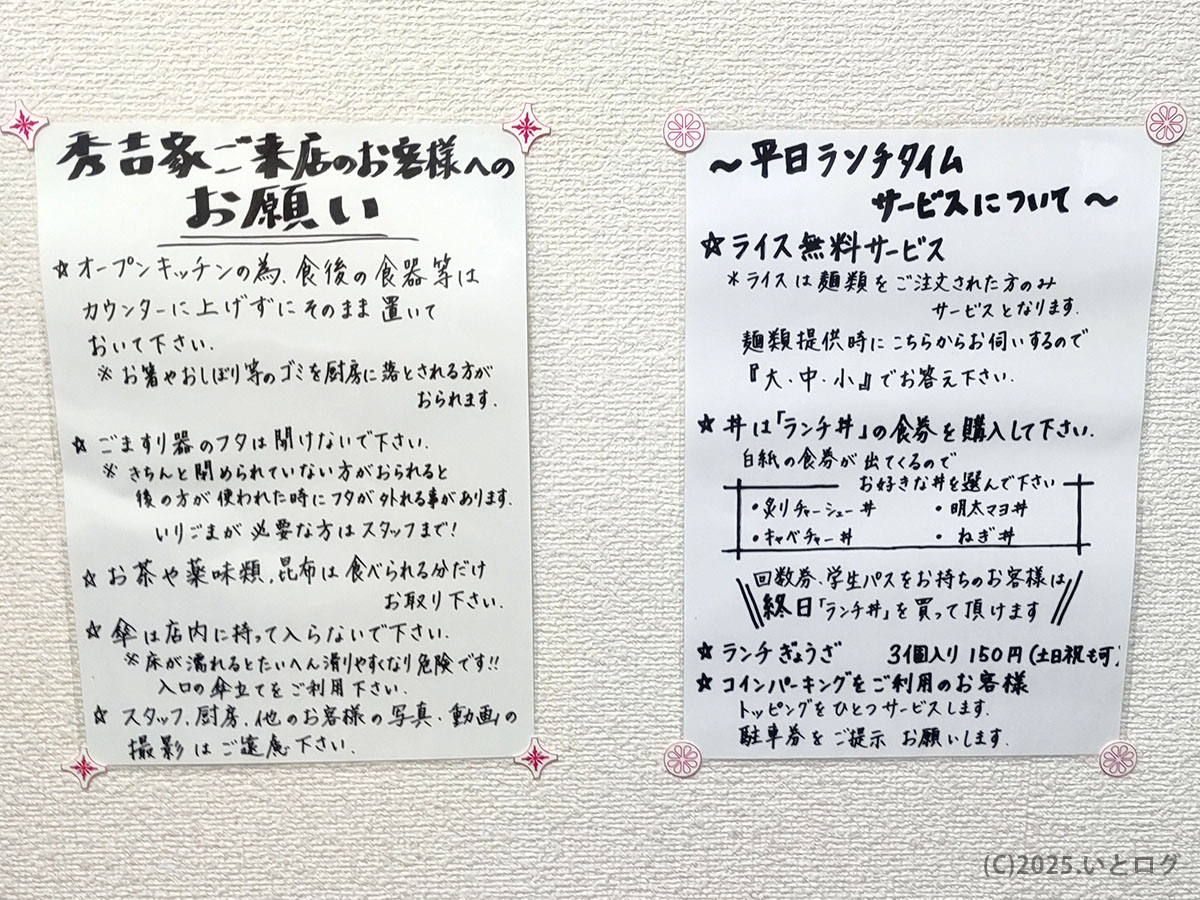 秀吉家ご来店のお客様への
お願い
☆オープンキッチンの為、食後の食器等は
カウンターに上げずにそのまま置いて
おいて下さい.
※お箸やおしぼり等のゴミを厨房に落とされる方が
おられます.
☆ごますり器のフタは開けないで下さい.
※きちんと閉められていない方がおられると
後の方が使われた時にフタが外れる事があります.
いりごまが必要な方はスタッフまで!
☆お茶や薬味類,昆布は食べられる分だけ
お取り下さい.
☆傘は店内に持って入らないで下さい.
※床が濡れるとたいへん滑りやすくなり危険です!!
入口の傘立てをご利用下さい.
☆スタッフ.厨房.他のお客様の写真・動画の
撮影はご遠慮下さい.
～平日ランチタイム
サービスについて～
☆ライス無料サービス
*ライスは麺類をご注文された方のみ
サービスとなります.
麺類提供時にこちらからお伺いするので
『大・中・小』でお答え下さい.
☆丼は「ランチ丼」の食券を購入して下さい.
白紙の食券が出てくるので
お好きな丼を選んで下さい
・炙りチャーシュー丼 ・明太マヨ丼
・キャベチャー丼 ・ねぎ丼
回数券、学生パスをお持ちのお客様は
終日「ランチ丼」を買って頂けます
☆ランチぎょうざ 3個入り 150円(土日祝も可)
☆コインパーキングをご利用のお客様
トッピングをひとつサービスします.
駐車券をご提示お願いします.
(C)2025.いとログ